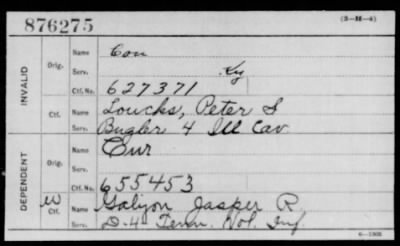 876275 (3-H-4)
INVALID
Orig. Name Con
Serv. Ky
Ctf. No. 627371
Ctf. Name Loucks, Peter S
Serv. Bugler 4 Ill Cav.
DEPENDENT
Orig. Name Cur
Serv.
Ctf. No. 655453
W Ctf. Name Galyon Jasper R.
Serv. D-4 Tenn. Vol. Inf.